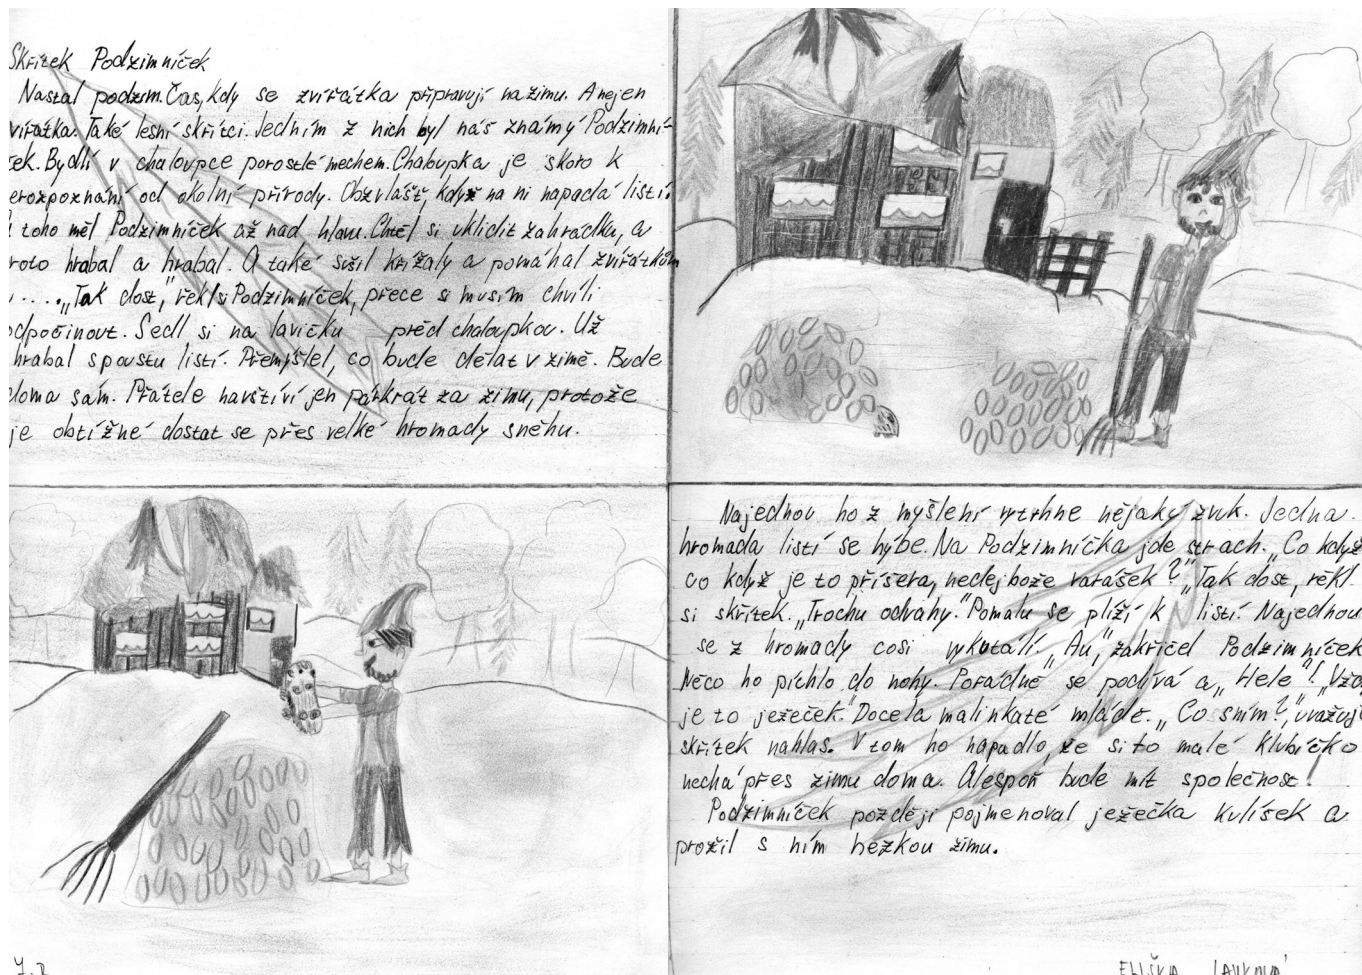 Skřítek Podzimníček
Nastal podzim. Čas, kdy se zvířátka připravují na zimu. A nejen
vířátka. Také lesní skřítci. Jedním z nich byl náš známý Podzimní-
ek. Bydlí v chaloupce porostlé mechem. Chaloupka je skoro k
erozpoznání od okolní přírody. Obzvlášť, když na ni napadá listí.
toho měl Podzimníček až nad hlavu. Chtěl si uklidit zahrádku, a
roto hrabal a hrabal. A také sušil křížaly a pomáhal zvířátkům
.... „Tak dost," řekl si Podzimníček, přece si musím chvíli
odpočinout. Sedl si na lavičku před chaloupkou. Už
hrabal spoustu listí. Přemýšlel, co bude dělat v zimě. Bude
doma sám. Přátele navštíví jen párkrát za zimu, protože
je obtížné dostat se přes velké hromady sněhu.
Najednou ho z myšlení vytrhne nějaký zvuk. Jedna
hromada listí se hýbe. Na Podzimníčka jde strach. „Co když
co když je to příšera, nedej bože varašek?" „Tak dost, řekl
si skřítek. „Trochu odvahy." Pomalu se plíží k listí. Najednou
se z hromady cosi vykutálí. „Au", zakřičel Podzimníček
Něco ho píchlo do nohy. Pořádně se podívá a „Hele"! „Vžd
je to ježeček." Docela malinkaté mládě. „Co sním?," uvažuj
skřítek nahlas. V tom ho napadlo, že si to malé klubíčko
nechá přes zimu doma. Alespoň bude mít společnost!
Podzimníček později pojmenoval ježečka Kulíšek a
prožil s ním hezkou zimu.
ELIŠKA